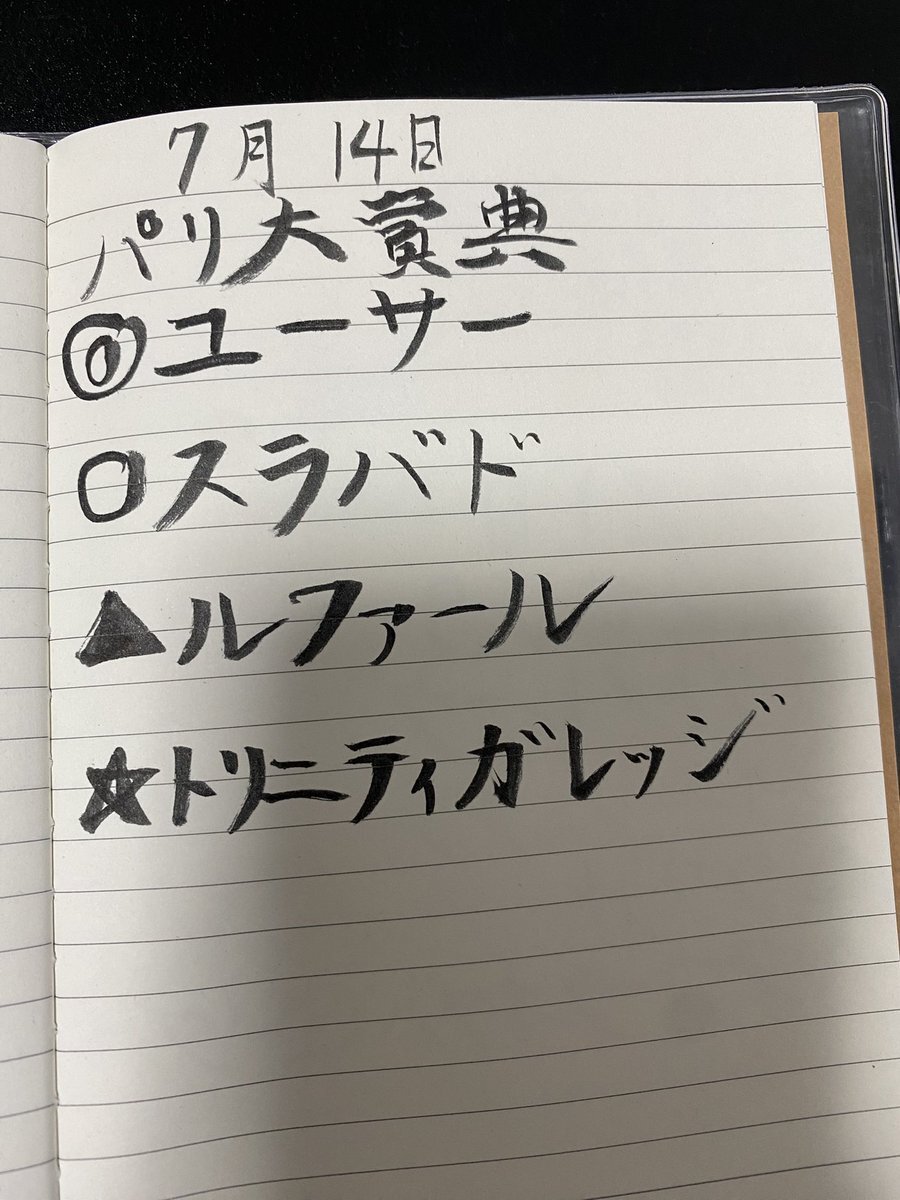 7月 14日
パリ大賞典
◎ユーサー
○スラバド
▲ルファール
☆トリニティガレッジ